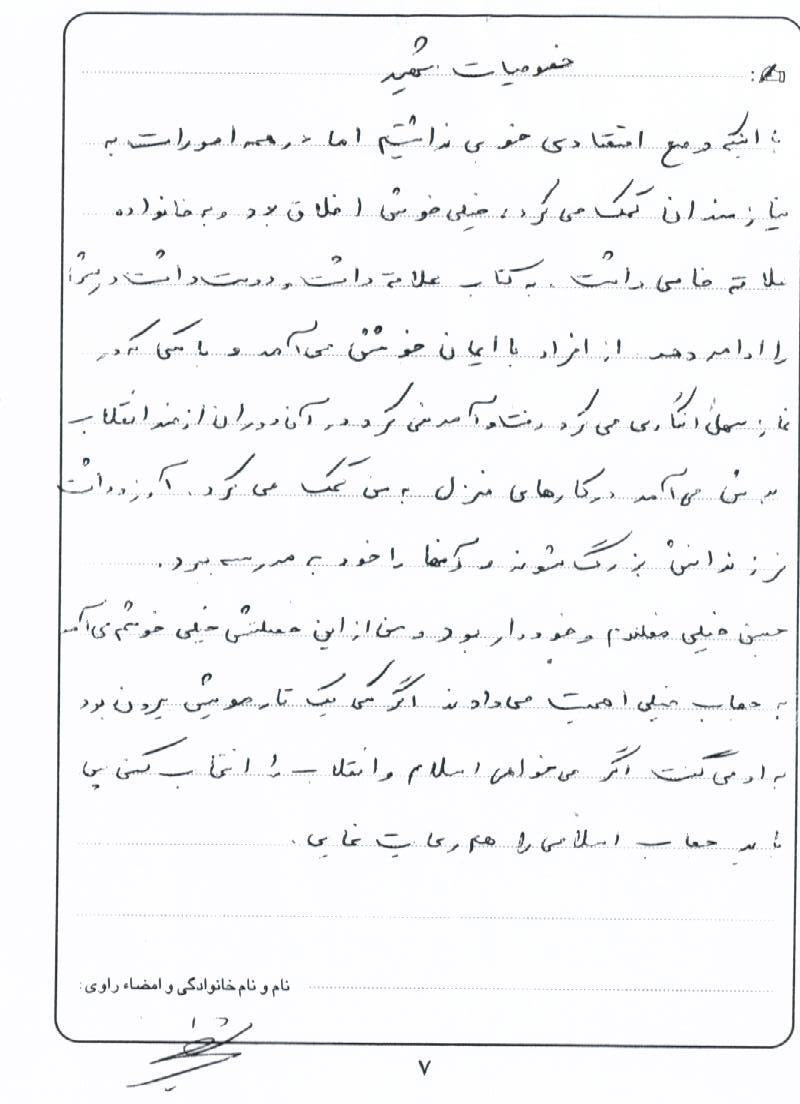 خصوصیات شهید
با اینکه وضع اقتصادی خوبی نداشتیم اما در همه امورات به
نیازمندان کمک می کرد، خیلی خوش اخلاق بود و به خانواده
علاقه خاصی داشت . به کتاب علاقه داشت و دوست داشت درسش
را ادامه دهد . از افراد با ایمان خوشش می آمد و با کسی که در
نماز سهل انگاری می کرد رفت و آمد نمی کرد در آن دوران از ضد انقلاب
بدش می آمد در کارهای منزل به من کمک می کرد . آرزو داشت
فرزندانش بزرگ شوند و آنها را خود به مدرسه ببرد .
حسن خیلی مظلوم و خوددار بود و من از این خصلتش خیلی خوشم می آمد
به حجاب خیلی اهمیت می داد اگر کسی یک تار مویش بیرون بود
به او می گفت اگر می خواهی اسلام و انقلاب را انتخاب کنی پس
باید حجاب اسلامی را هم رعایت نمایی .
نام و نام خانوادگی و امضاء راوی:
۷